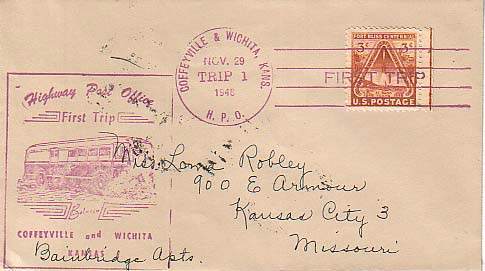 COFFEYVILLE & WICHITA, KANS.
NOV. 29
TRIP 1
1948
H. P. O.
FORT BLISS CENTENNIAL
3¢ 3¢
U.S. POSTAGE
FIRST TRIP
Highway Post Office
First Trip
COFFEYVILLE and WICHITA
KANSAS
Miss Lona Robley
900 E Armour
Kansas City 3
Missouri
Bainbridge Apts.